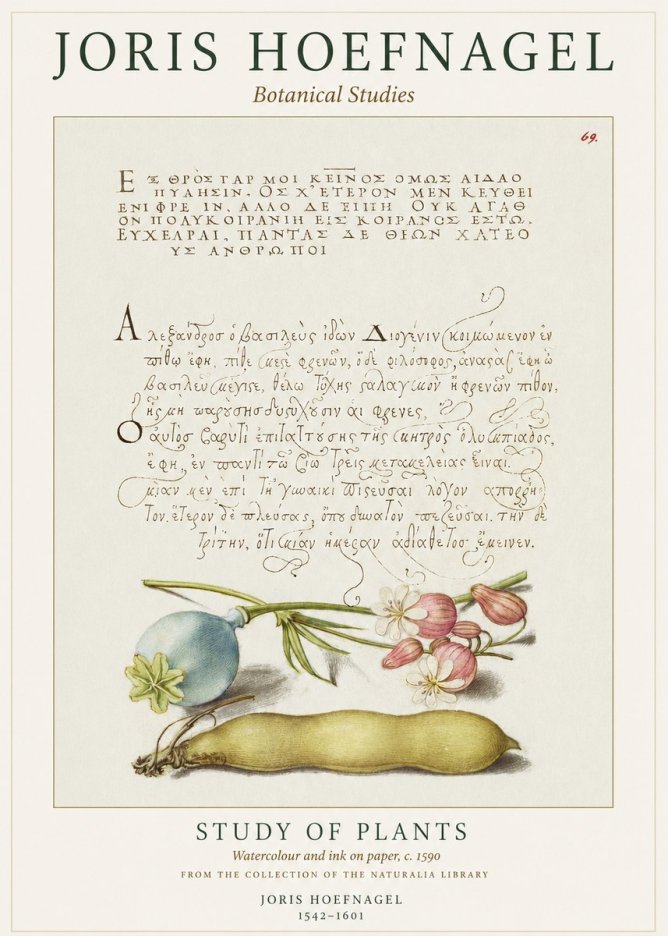 JORIS HOEFNAGEL
Botanical Studies
69.
Ε ΧΘΡΟΣ ΓΑΡ ΜΟΙ ΚΕΙΝΟΣ ΟΜΩΣ ΑΙΔΑΟ
ΠΥΛΗΣΙΝ. ΟΣ Χ' ΕΤΕΡΟΝ ΜΕΝ ΚΕΥΘΕΙ
ΕΝΙ ΦΡΕ ΙΝ, ΑΛΛΟ ΔΕ ΕΙΠΗ ΟΥΚ ΑΓΑΘ
ΟΝ ΠΟΛΥΚΟΙΡΑΝΙΗ ΕΙΣ ΚΟΙΡΑΝΟΣ ΕΣΤΩ.
ΕΥΧΕΑΡΑΙ, ΠΑΝΤΑΣ ΔΕ ΘΕΩΝ ΧΑΤΕΟ
ΥΣ ΑΝΘΡΩΠΟΙ
Αλεξανδρος ὁ βασιλευς ἰδων Διογενιν κοιμώμενον ἐν
πίθω ἔφη, πίθε φρενῶν, ὁ δὲ φιλόσοφος, ἔφη ὦ
βασιλευ, θέλω τύχης σαλαγμον ἢ φρενῶν πίθον,
ἧς μὴ φρενες,
Ο αυτος ἐπιταττούσης της μητρος ὀλυμπιάδος,
ἔφη, ἐν παντὶ τῶ βίω τρεῖς μεταμελείας εἶναι.
μίαν μὲν ἐπὶ τῆ γυναικι πιστεῦσαι λόγον
Τον ἕτερον δὲ πλεύσας, ὅπου δυνατον πεζεῦσαι. την δὲ
τρίτην, ὅτι μίαν ἡμέραν ἀδιάθετος ἔμεινεν.
STUDY OF PLANTS
Watercolour and ink on paper, c. 1590
FROM THE COLLECTION OF THE NATURALIA LIBRARY
JORIS HOEFNAGEL
1542–1601